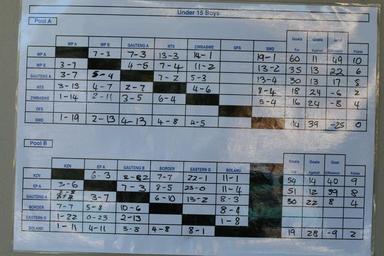 Under 15 Boys
Pool A
WP A KP A GAUTENG A NTS ZIMBABWE GFS SWD Goals For Goals Against Goal Difference Points
WP A 7-3 7-3 13-3 14-1 19-1 60 11 49 10
KP A 3-7 4-5 7-4 11-2 13-2 35 13 22 6
GAUTENG A 3-7 5-4 7-2 5-3 13-4 30 13 17 5
NTS 3-13 4-7 2-7 4-6 8-4 18 24 -6 2
ZIMBABWE 1-14 2-11 3-5 6-4 5-4 16 24 -8 4
GFS
SWD 1-19 2-13 4-13 4-8 4-5 14 39 -25 0
Pool B
KZN EP A GAUTENG B BORDER EASTERN G BOLAND Goals For Goals Against Goal Difference Points
KZN 6-3 7-7 22-1 11-1 50 14 40 9
EP A 3-6 7-3 8-5 23-0 11-4 51 12 39 8
GAUTENG B 3-7 6-10 13-2 8-3 30 22 8 4
BORDER 7-7 5-8 10-6 8-8
EASTERN G 1-22 0-23 2-13 1-8
BOLAND 1-11 4-11 3-8 8-1 19 28 -9 2